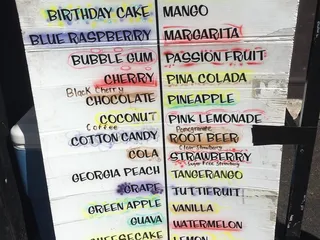 BIRTHDAY CAKE
BLUE RASPBERRY
BUBBLE GUM
CHERRY
Black Cherry
CHOCOLATE
COCONUT
Coffee
COTTON CANDY
COLA
GEORGIA PEACH
GRAPE
GREEN APPLE
GUAVA
CHEESECAKE
MANGO
MARGARITA
PASSION FRUIT
PINA COLADA
PINEAPPLE
PINK LEMONADE
Pomegranate
ROOT BEER
Clear Strawberry
STRAWBERRY
Sugar Free Strawberry
TANGERANGO
TUTTIFRUIT
VANILLA
WATERMELON
LEMON